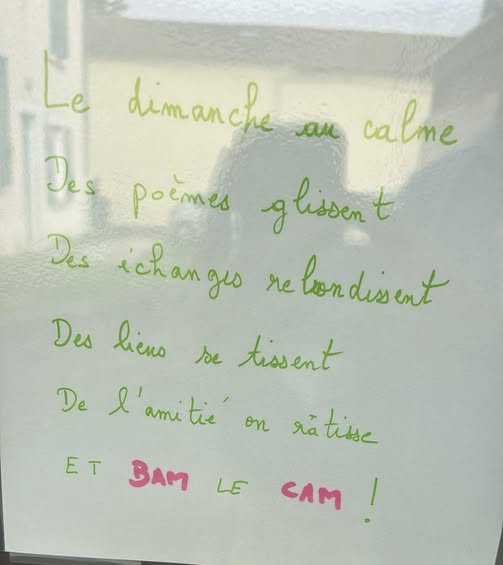 Le dimanche au calme
Des poèmes glissent
Des échanges rebondissent
Des liens se tissent
De l'amitié on râtisse
ET BAM LE CAM !